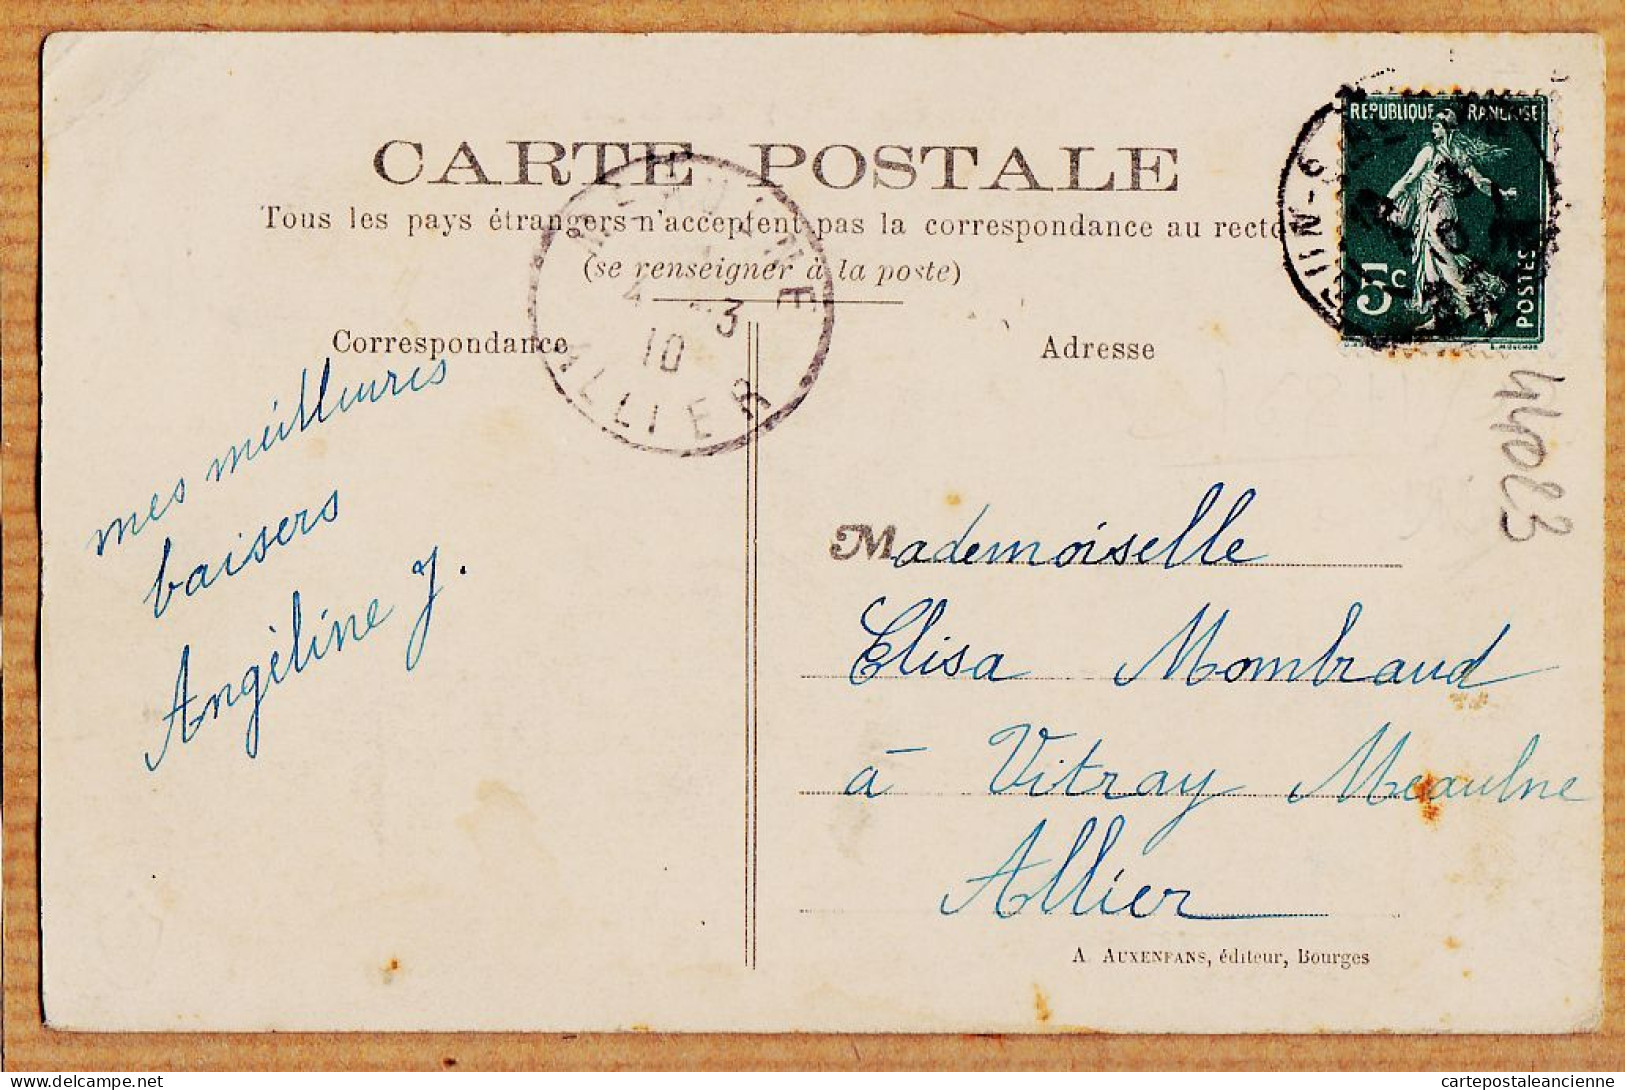 CARTE POSTALE
Tous les pays étrangers n'acceptent pas la correspondance au recto
(se renseigner à la poste)
REPUBLIQUE FRANÇAISE
5c
POSTES
4 -3
10
ALLIER
Correspondance
Adresse
mes meilleures
baisers
Angéline J.
44023
Mademoiselle
Elisa Mombraud
à Vitray Meaulne
Allier
A. AUXENFANS, éditeur, Bourges
delcampe.net
cartepostaleancienne